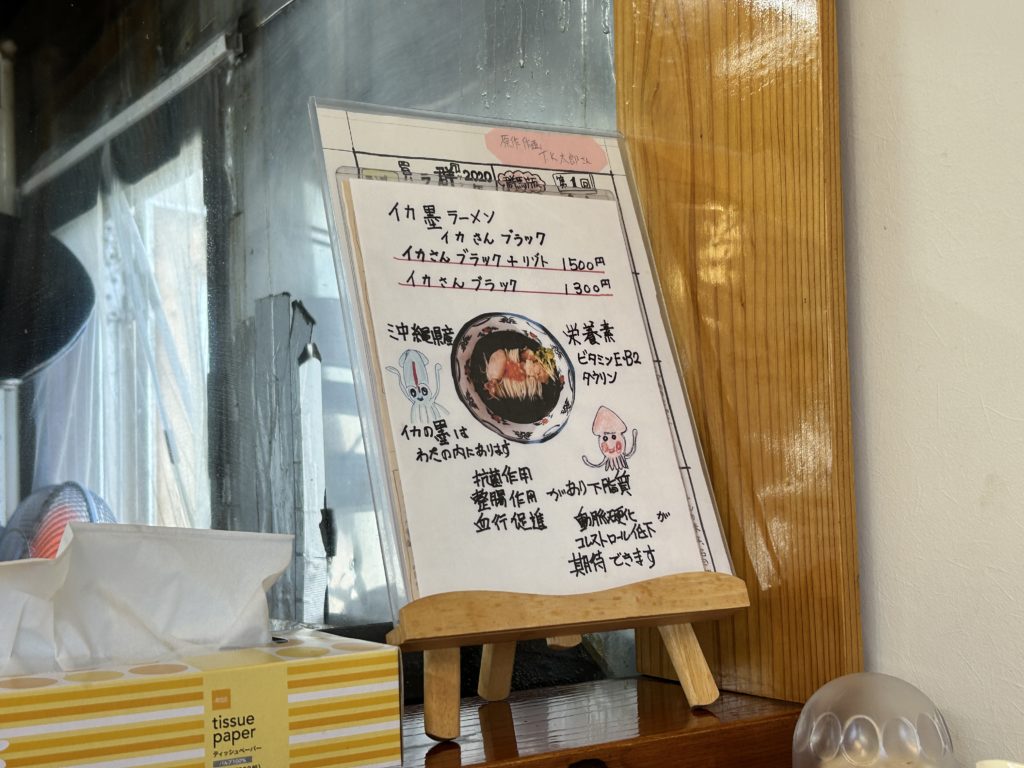 原作作画
TK太郎さん
群
2020
群馬版
第1回
イカ墨ラーメン
イカさんブラック
イカさんブラック+リゾト 1500円
イカさんブラック 1300円
沖縄県産
栄養素
ビタミンE・B2
タウリン
イカの墨は
わたの内にあります
抗菌作用
整腸作用
血行促進
があり下脂質
動脈硬化
コレストロール低下が
期待できます
tissue
paper
ティッシュペーパー
パルプ100%